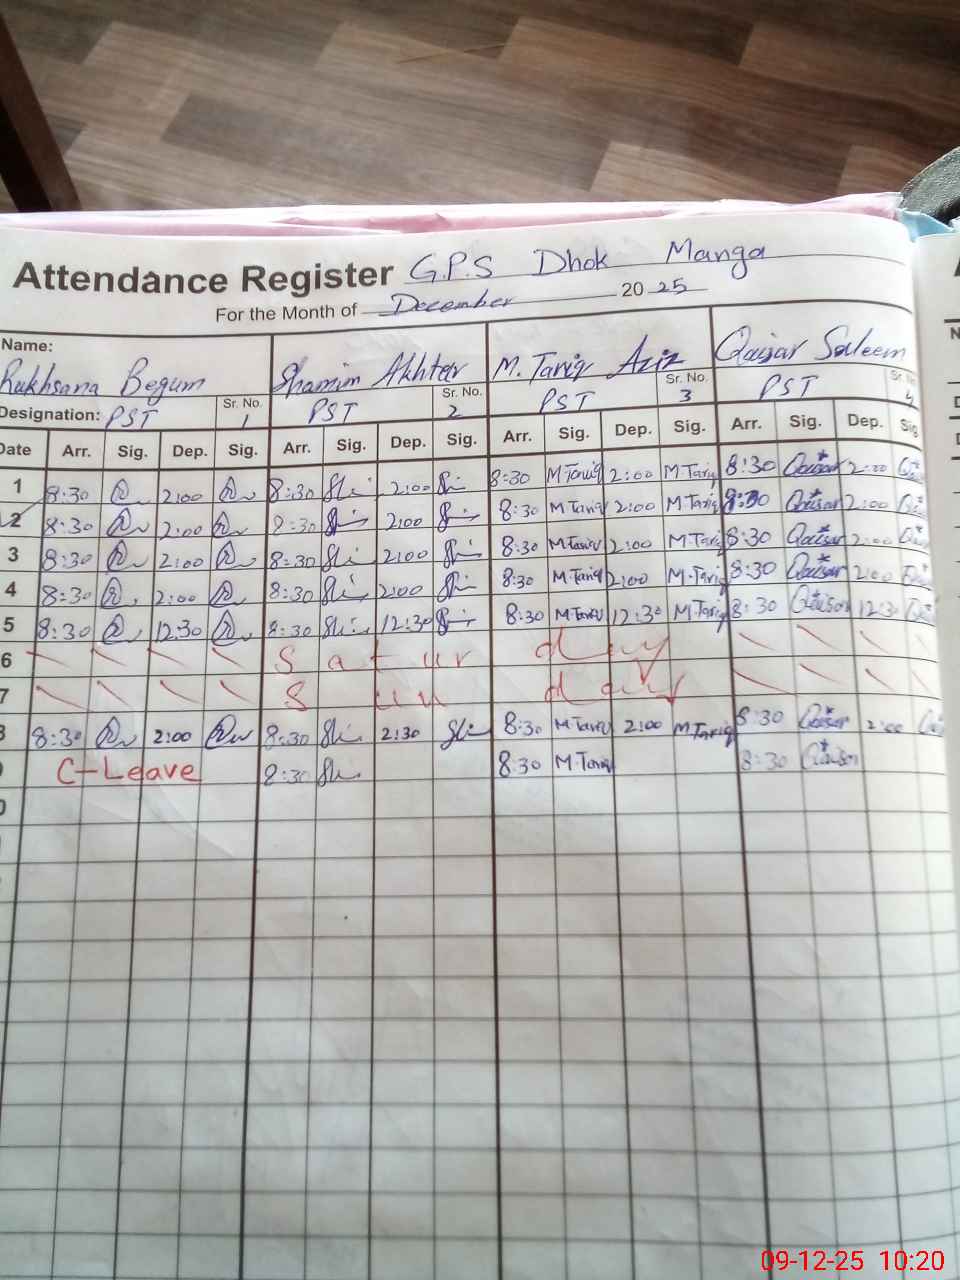 Attendance Register G.P.S Dhok Manga
For the Month of December 2025
Name:
Rukhsana Begum Shamim Akhter M. Tariq Aziz Qaisar Saleem
Designation: PST Sr. No. 1 PST Sr. No. 2 PST Sr. No. 3 PST Sr. No. 4
Date Arr. Sig. Dep. Sig. Arr. Sig. Dep. Sig. Arr. Sig. Dep. Sig. Arr. Sig. Dep. Sig
1 8:30 2:00 8:30 2:00 8:30 M.Tariq 2:00 M.Tariq 8:30 Qaisar 2:00
2 8:30 2:00 8:30 2:00 8:30 M.Tariq 2:00 M.Tariq 8:30 Qaisar 2:00
3 8:30 2:00 8:30 2:00 8:30 M.Tariq 2:00 M.Tariq 8:30 Qaisar 2:00
4 8:30 2:00 8:30 2:00 8:30 M.Tariq 2:00 M.Tariq 8:30 Qaisar 2:00
5 8:30 12:30 8:30 12:30 8:30 M.Tariq 12:30 M.Tariq 8:30 Qaisar 12:30
6 Saturday
7 Sunday
8 8:30 2:00 8:30 2:30 8:30 M.Tariq 2:00 M.Tariq 8:30 Qaisar 2:00
C-Leave 8:30 8:30 M.Tariq 8:30 Qaisar
0
09-12-25 10:20